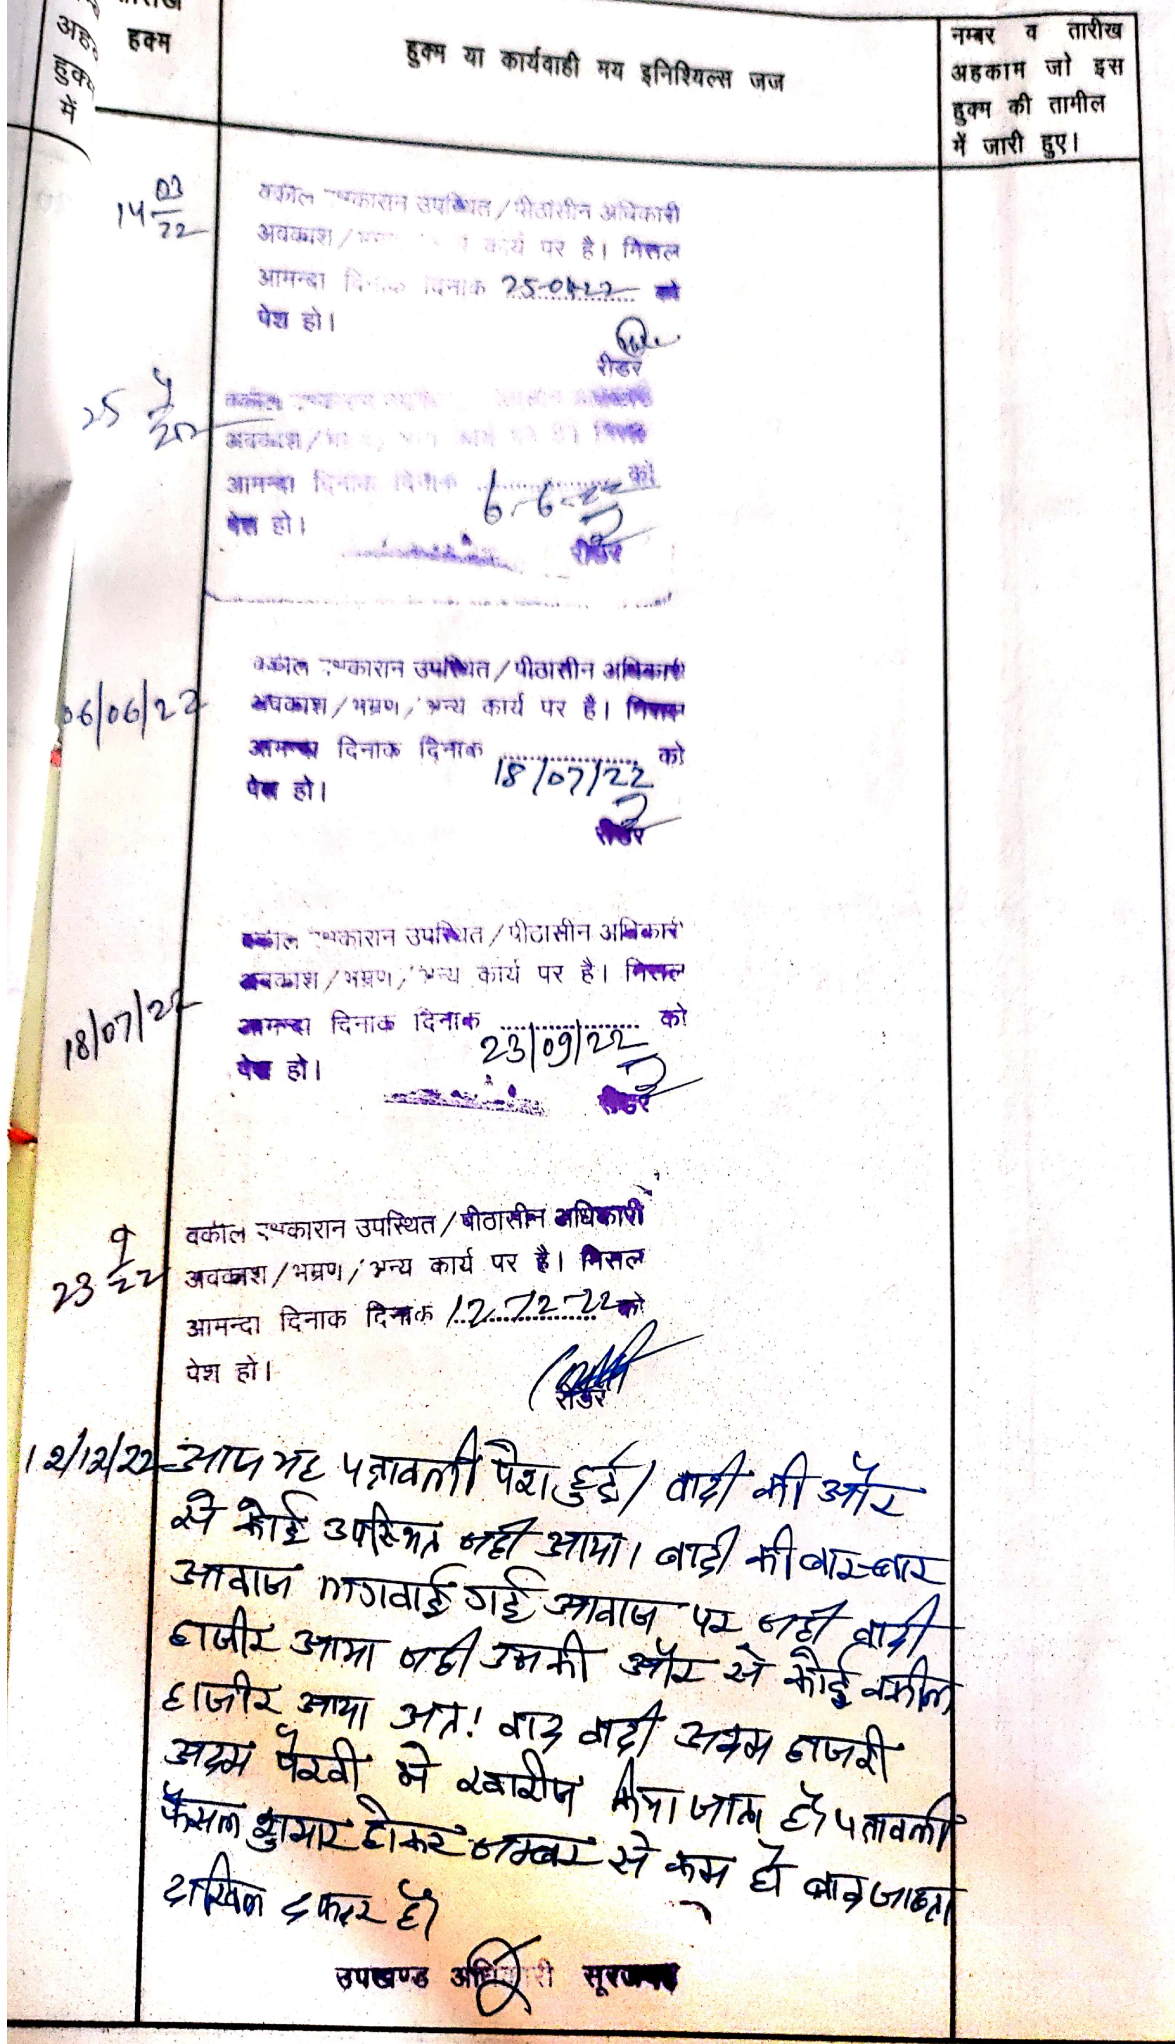 तारीख
हुक्म
अह
हुक्म
में
हुक्म या कार्यवाही मय इनिशियल्स जज
नम्बर व तारीख
अहकाम जो इस
हुक्म की तामील
में जारी हुए।
14 03/22
वकील पक्षकारान उपस्थित/पीठासीन अधिकारी
अवकाश/ कार्य पर है। मिसल
आमन्दा दिनांक दिनाक 25-04-22 को
पेश हो।
रीडर
25 4/22
अवकाश/
आमन्दा दिनाक दिनाक 6-6-22 को
पेश हो।
रीडर
06/06/22
वकील पक्षकारान उपस्थित/पीठासीन अधिकारी
अवकाश/भम्रण/अन्य कार्य पर है। मिसल
आमन्दा दिनाक दिनाक 18/07/22 को
पेश हो।
रीडर
18/07/22
वकील पक्षकारान उपस्थित/पीठासीन अधिकारी
अवकाश/भम्रण/अन्य कार्य पर है। मिसल
आमन्दा दिनाक दिनाक 23/09/22 को
पेश हो।
रीडर
23 9/22
वकील पक्षकारान उपस्थित/पीठासीन अधिकारी
अवकाश/भम्रण/अन्य कार्य पर है। मिसल
आमन्दा दिनाक दिनाक 12-12-22 को
पेश हो।
रीडर
12/12/22 आज यह पत्रावली पेश हुई। वादी की और
से कोई उपस्थित नही आया। वादी की बार-बार
आवाज लगवाई गई आवाज पर नही वादी
हाजीर आया नही उसकी और से कोई वकील
हाजीर आया अत! वाद वादी अदम हाजरी
अदम पैरवी मे खारीज किया जाता है। पत्रावली
फैसल शुमार होकर नम्बर से कम हो बाद जाब्ता
दाखिल दफ्तर हो
उपखण्ड अधिकारी सूरजगढ